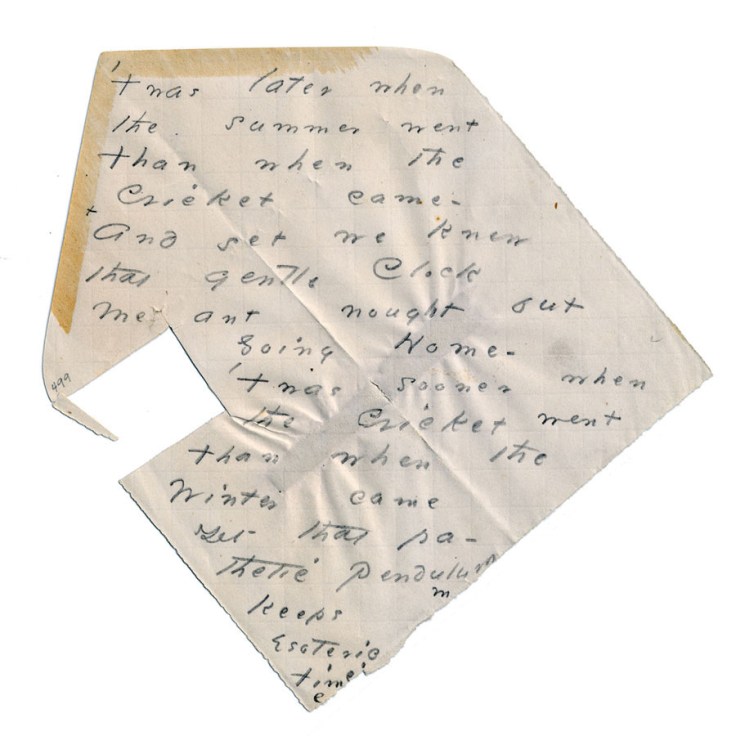 'Twas later when
the summer went
than when the
Cricket came -
+
And yet we knew
that gentle Clock
Meant nought but
Going Home -
'Twas sooner when
the Cricket went
than when the
Winter came
Yet that pa -
thetic Pendulum
m
Keeps
Esoteric
time
e
499